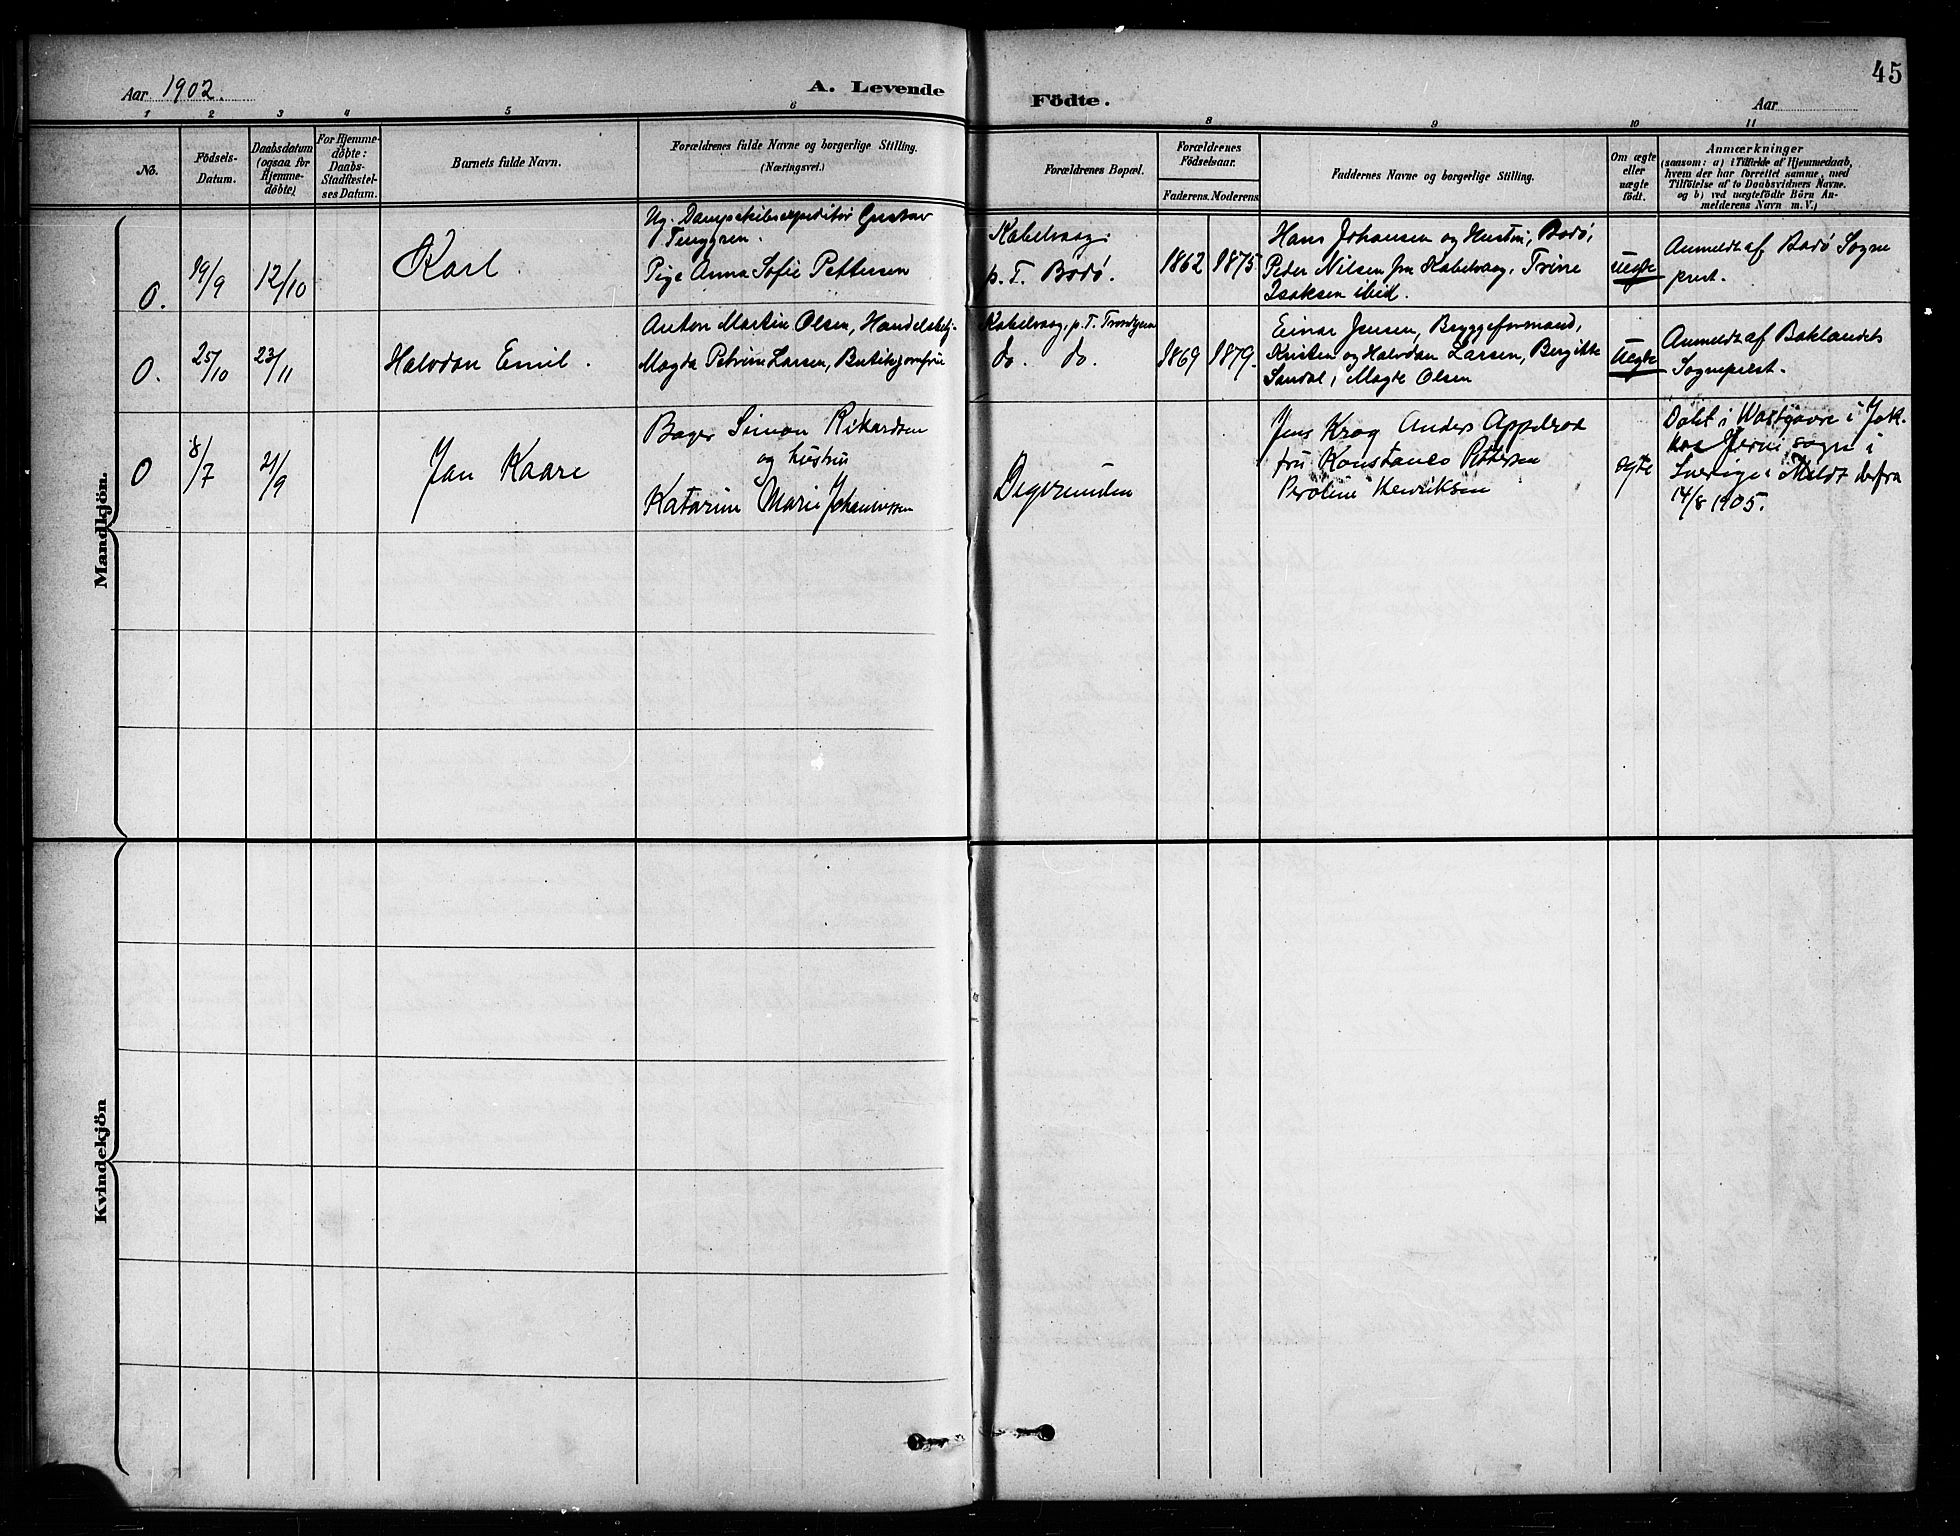 45
Aar 1902.
A. Levende
Födte.
Aar
1 2 3 4 5 6 8 9 10 11
No.
Födsels-
Datum.
Daabsdatum
(ogsaa for
Hjemme-
döbte)
For Hjemme-
döbte:
Daabs-
Stadfæstel-
ses Datum.
Barnets fulde Navn.
Forældrenes fulde Navne og borgerlige Stilling.
(Næringsvei.)
Forældrenes Bopæl.
Forældrenes
Födselsaar.
Faderens. Moderens.
Faddernes Navne og borgerlige Stilling.
Om ægte
eller
uægte
födt.
Anmærkninger
(saasom: a) i Tilfælde af Hjemmedaab,
hvem der har forrettet samme, med
Tilföielse af to Daabsvidners Navne.
og b) ved uægtefödte Börn An-
melderens Navn m.V.)
Mandkjön.
O.
19/9
12/10
Karl.
Ug. Dampskibsexpeditör Gustav
Tenggren.
Pige Anna Sofie Pettersen
Kabelvaag.
p. T. Bodø.
1862 1875
Hans Johansen og Hustru, Bodø,
Peder Nilsen fra Kabelvaag, Trine
Isaksen ibid.
Uegte
Anmeldt af Bodø Sogne
prest.
O.
25/10
23/11
Halvdan Emil.
Anton Martin Olsen, Handelsbetj.
Magda Petrine Larsen, Butikjomfru
Kabelvaag, p. T. Trondhjem
do. do.
1869 1879.
Einar Jensen, Bryggeformand,
Kristen og Halvdan Larsen, Bergitte
Sandal, Magte Olsen
Uegte
Anmeldt af Baklandets
Sogneprest.
O
8/7
21/9
Jan Kaare
Bager Simon Rikardsen
og hustru
Katarine Marie Johannessen
Digermulen
Jens Krog Anders Appelrod
fru Konstance Pettersen
Peroline Henriksen
egte
Døbt i i
sogn i
Sverige. Meldt derfra
14/8 1905.
Kvindekjön